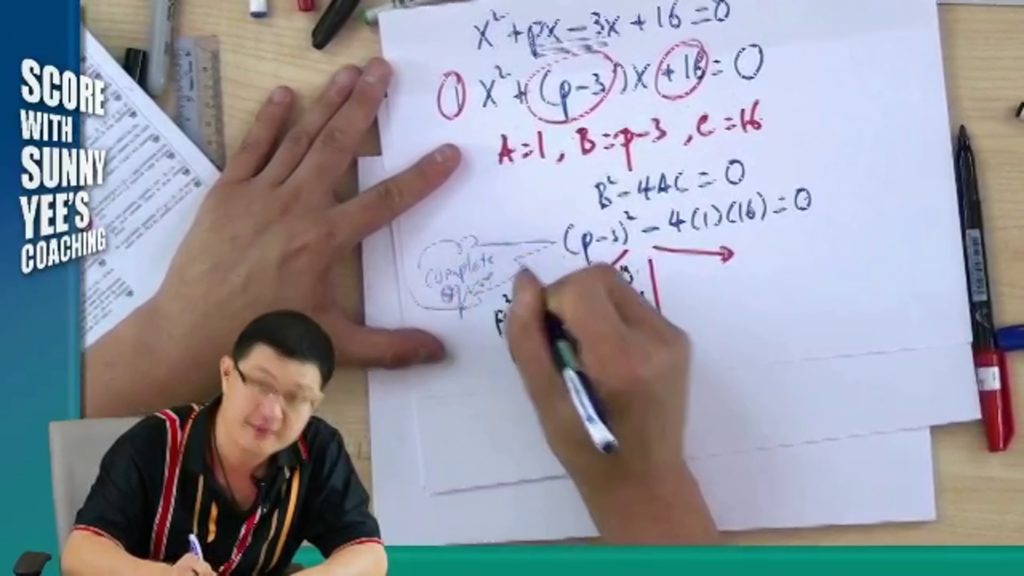 SCORE
WITH
SUNNY
YEE'S
COACHING
x² + px - 3x + 16 = 0
1 x² + (p-3)x + 16 = 0
A=1, B=p-3, C=16
B² - 4AC = 0
(p-3)² - 4(1)(16) = 0
Complete